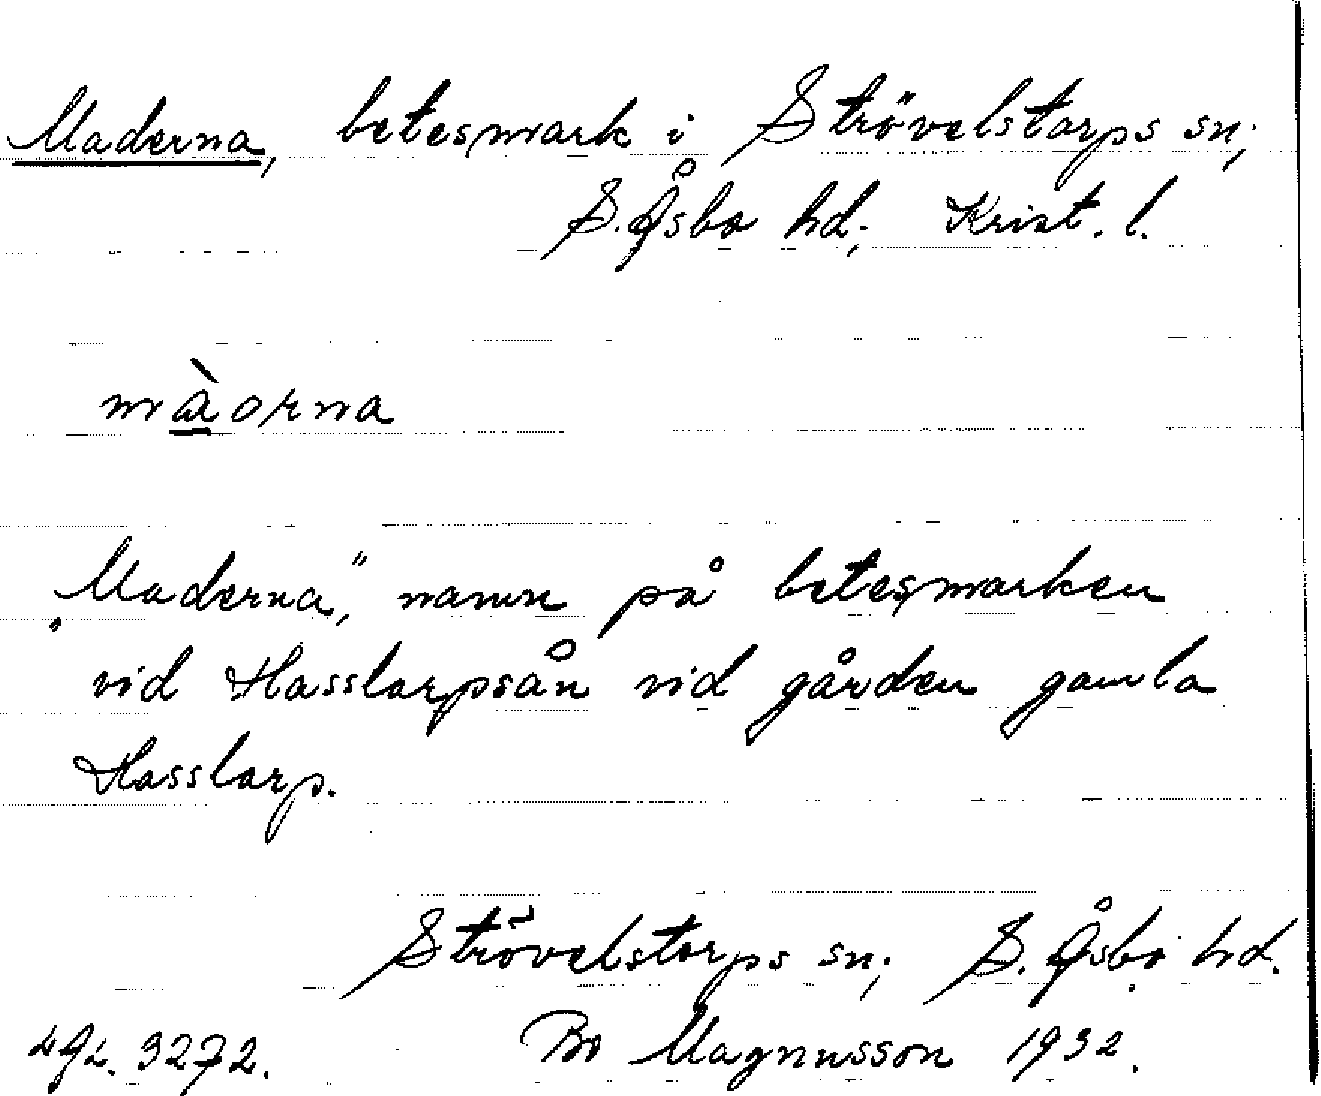 Maderna, betesmark i Strövelstorps sn;
S. Åsbo hd; Krist. l.
màorna
„Maderna”, namn på betesmarken
vid Hasslarpsån vid gården gamla
Hasslarp.
Strövelstorps sn; S. Åsbo hd.
3272. Bo Magnusson 1932.